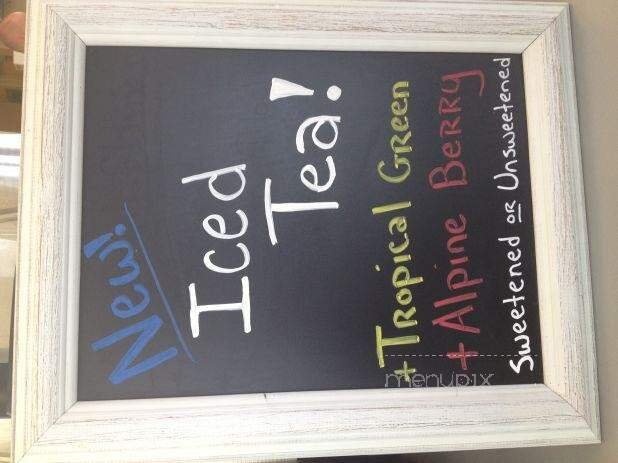 New!
Iced
Tea!
+Tropical Green
+Alpine Berry
Sweetened or Unsweetened
menupix